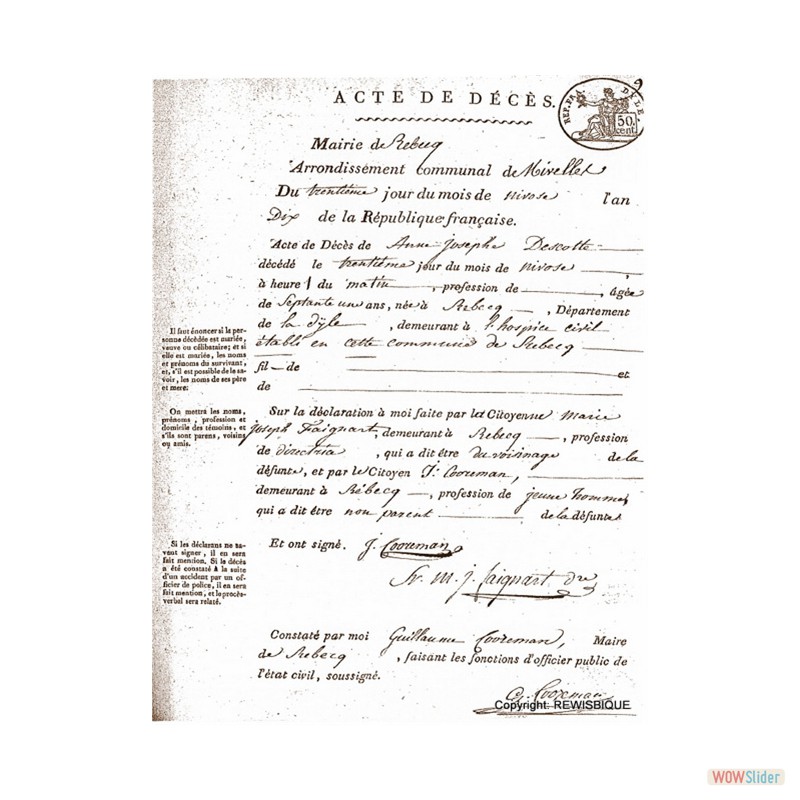 ACTE DE DÉCÈS.
REP. FRA. DYLE
50. cent.
Mairie de Rebecq
Arrondissement communal de Nivelles
Du trentième jour du mois de nivose l'an
Dix de la République française.
Acte de Décès de Anne-Josephe Descotte
décédé le trentième jour du mois de nivose,
à heure 1 du matin, profession de, âgée
de Septante un ans, née à Rebecq, Département
de la dÿle, demeurant à l'hospice civil
établi en cette commune de Rebecq
fil de et
de
Il faut énoncer si la per-
sonne décédée est mariée,
veuve ou célibataire; et si
elle est mariée, les noms
et prénoms du survivant,
et, s'il est possible de le sa-
voir, les noms de ses père
et mere.
Sur la déclaration à moi faite par la Citoyenne Marie
Joseph Faignart, demeurant à Rebecq, profession
de directria, qui a dit être du voisinage de la
défunte, et par le Citoyen J: Cooreman,
demeurant à Rébecq, profession de jeune homme,
qui a dit être non parent de la défunte
On mettra les noms,
prénoms, profession et
domicile des témoins, et
s'ils sont parens, voisins
ou amis.
Et ont signé. J. Cooreman
Sr. M. J. Faignart Dre
Si les déclarans ne sa-
vent signer, il en sera
fait mention. Si le décès
a été constaté à la suite
d'un accident par un of-
ficier de police, il en sera
fait mention, et le procès-
verbal sera relaté.
Constaté par moi Guillaume Cooreman, Maire
de Rebecq, faisant les fonctions d'officier public de
l'état civil, soussigné.
G. Cooreman
Copyright: REWISBIQUE
WOWSlider